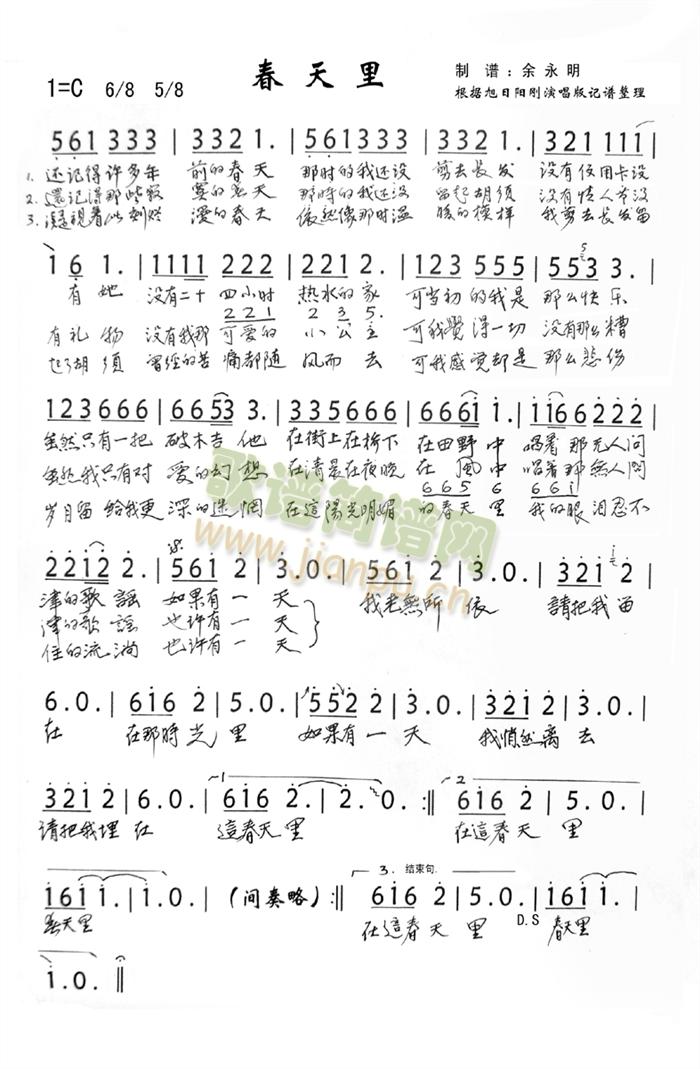 春天里
1=C 6/8 5/8
制 谱：余永明
根据旭日阳刚演唱版记谱整理
561 333 | 332 1. | 561 333 | 332 1. | 321 111 |
1. 还记得许多年 前的春天 那时的我还没 剪去长发 没有信用卡没
2. 還记得那些寂 寞的春天 那時的我还没 留起胡须 没有情人节没
3. 凝視着此刻烂 漫的春天 依然像那时温 暖的模样 我剪去长发留
1 6 1. | 1111 222 | 2221 2. | 123 555 | 5553 3. |
有她 没有二十 四小时 热水的家 可当初的我是 那么快乐
221 235.
有礼物 没有我那 可爱的 小公主 可我覺得一切 没有那么糟
起了胡须 曾经的苦 痛都随 风而去 可我感觉却是 那么悲伤
123666 | 6653 3. | 335666 | 6661 1. | 1166222 |
虽然只有一把 破木吉他 在街上在桥下 在田野中 唱着那无人问
虽然我只有对 爱的幻想 在清晨在夜晚 在風中 唱着那無人問
6 6 5 6 6 6 1
岁月留给我更 深的迷惘 在這陽光明媚 的春天里 我的眼泪忍不
2212 2. | 561 2 | 3.0. | 561 2 | 3.0. | 321 2 |
津的歌謡 如果有一天 我老無所依 請把我留
津的歌謡 也许有一天
住的流淌 也许有一天
6.0. | 616 2 | 5.0. | 552 2 | 3.0. | 321 2 | 3.0. |
在 在那時光里 如果有一天 我悄然离去
1
2
321 2 | 6.0. | 616 2. | 2.0. :‖ 616 2 | 5.0. |
请把我埋在 這春天里 在這春天里
3. 结束句.
161 1. | 1.0. | (间奏略) :‖ 616 2 | 5.0. | 161 1. |
春天里 在這春天里 D.S 春天里
1.0. ‖
歌谱简谱网
www.jianpu.cn